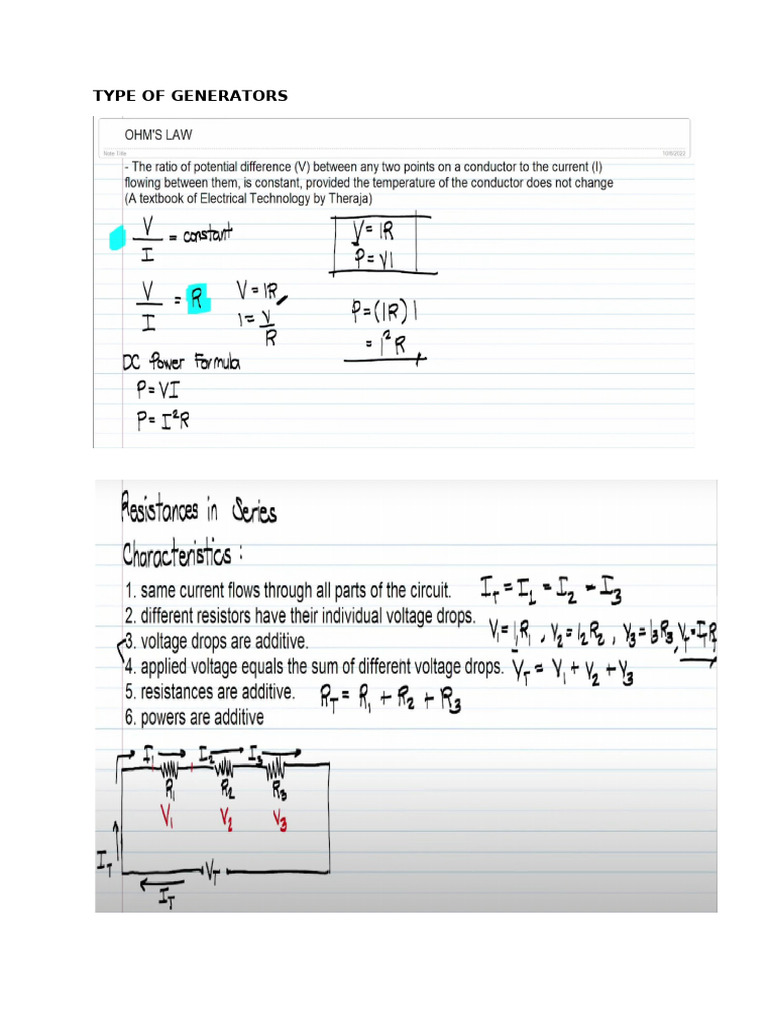 TYPE OF GENERATORS
OHM'S LAW
Note Title 10/6/2022
- The ratio of potential difference (V) between any two points on a conductor to the current (I)
flowing between them, is constant, provided the temperature of the conductor does not change
(A textbook of Electrical Technology by Theraja)
V/I = constant
V/I = R
V = IR
I = V/R
DC Power Formula
P = VI
P = I²R
V = IR
P = VI
P = (IR) I
= I²R
Resistances in Series
Characteristics :
1. same current flows through all parts of the circuit. I_T = I_1 = I_2 = I_3
2. different resistors have their individual voltage drops.
V_1 = I_1R_1 , V_2 = I_2R_2 , V_3 = I_3R_3 , V_T = I_TR
3. voltage drops are additive.
4. applied voltage equals the sum of different voltage drops. V_T = V_1 + V_2 + V_3
5. resistances are additive. R_T = R_1 + R_2 + R_3
6. powers are additive
I_1 I_2 I_3
R_1 R_2 R_3
V_1 V_2 V_3
I_T
V_T
I_T